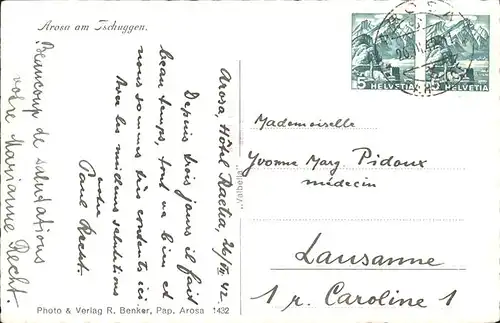 Arosa am Tschuggen.
Arosa, Hôtel Raetia, 26/VII 42.
Depuis trois jours il fait
beau temps, tout va bien et
nous sommes très contents ici
Avec les meilleures salutations
votre
Paul Recht.
Beaucoup de salutations
votre Marianne Recht.
AROSA
5 HELVETIA
5 HELVETIA
Mademoiselle
Yvonne Marg. Pidoux
médecin
Lausanne
1 r. Caroline 1
Photo & Verlag R. Benker, Pap. Arosa 1432